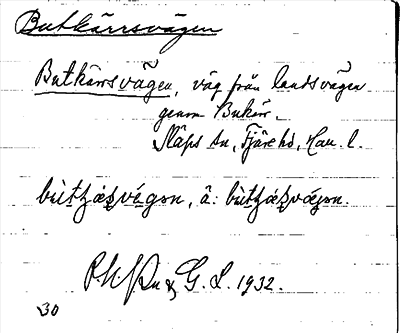 Butkärrsvägen
Butkärrsvägen, väg från landsvägen
genom Bukär.
Släps sn, Fjäre hd, Hall. l.
bùtʒæʂvégən, å: bùtʒæʂvǽgən.
G. L. 1932.
30